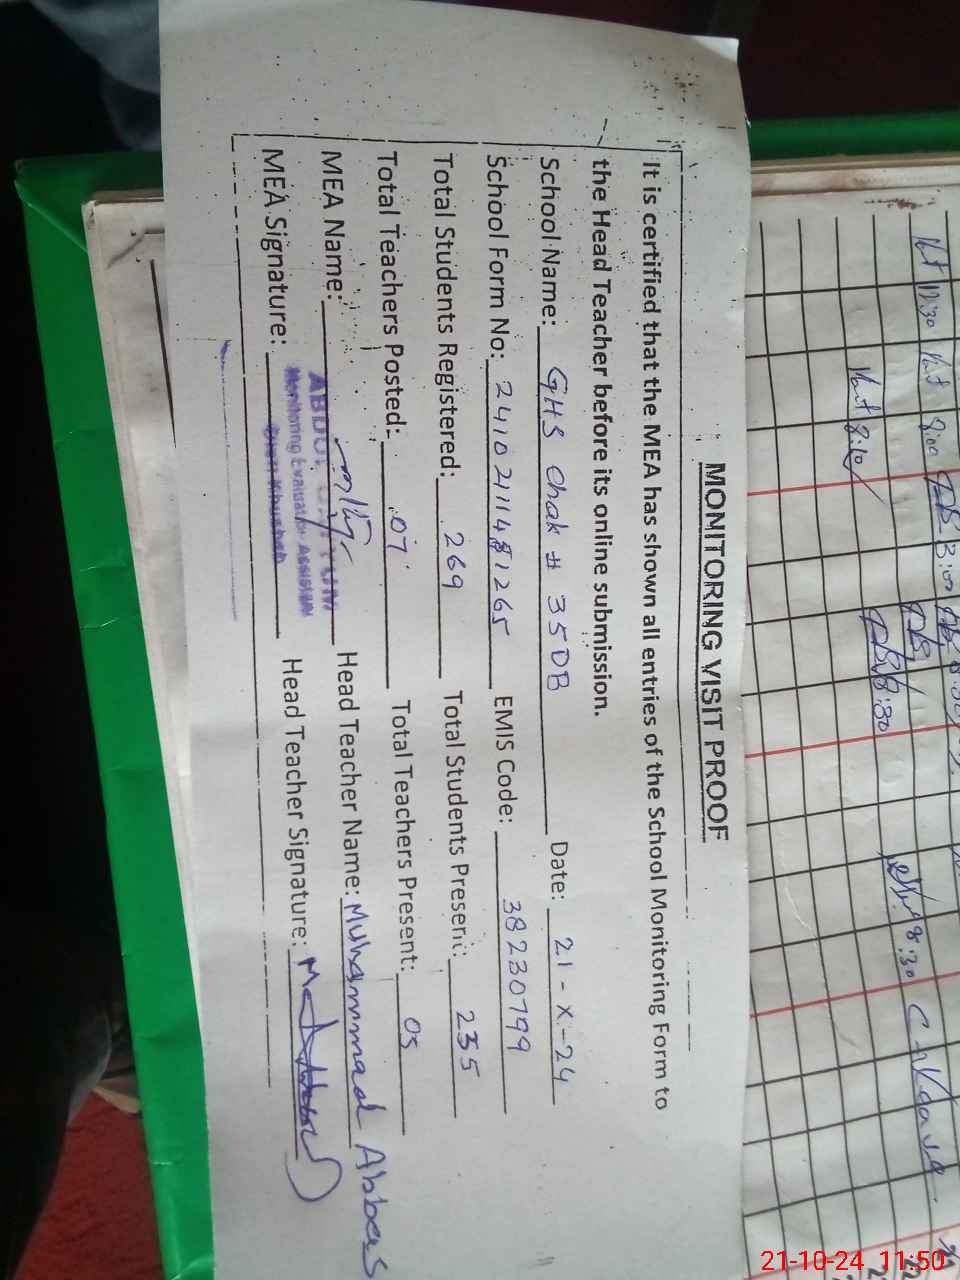 MONITORING VISIT PROOF
It is certified that the MEA has shown all entries of the School Monitoring Form to
the Head Teacher before its online submission.
School Name: GHS Chak # 35DB Date: 21-X-24
School Form No: 2410211481265 EMIS Code: 38230799
Total Students Registered: 269 Total Students Present: 235
Total Teachers Posted: 07 Total Teachers Present: 05
MEA Name: ABDUL Head Teacher Name: Muhammad Abbas
Monitoring Evaluation Assistant
MEA Signature: Khushab Head Teacher Signature:
12:30 8:00 3:00 8:30
8:30
8:10
8:30
21-10-24 11:50